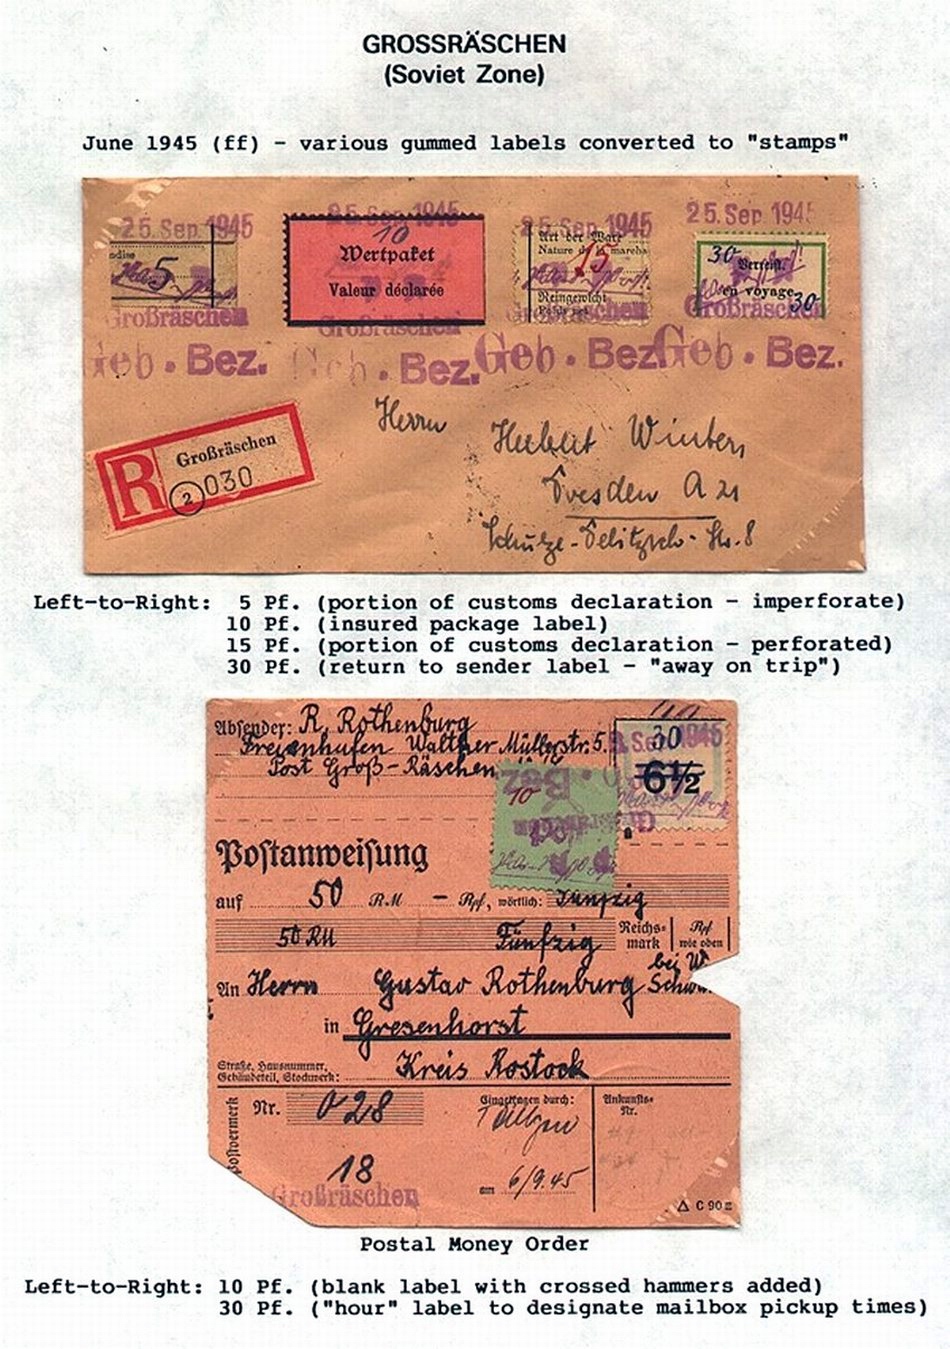 GROSSRÄSCHEN
(Soviet Zone)
June 1945 (ff) - various gummed labels converted to "stamps"
25. Sep. 1945
25. Sep. 1945
25. Sep. 1945
25. Sep. 194
5
10
Wertpaket
Valeur déclarée
Art der Ware
Nature de la marcha
15
Reingewicht
30
Verreist.
en voyage
30
Großräschen
Großräschen
Großräschen
Großräschen
Geb. Bez.
Geb. Bez.
Geb. Bez.
Geb. Bez.
R
Großräschen
2 030
Herrn
Hubert Winter,
Dresden A 21
Schulze-Delitzsch-Str. 8
Left-to-Right: 5 Pf. (portion of customs declaration - imperforate)
10 Pf. (insured package label)
15 Pf. (portion of customs declaration - perforated)
30 Pf. (return to sender label - "away on trip")
Absender: R. Rothenburg
Freienhufen Walther Müllerstr. 5.
Post Groß-Räschen
30
6½
10
Postanweisung
auf 50 RM - Rpf, wörtlich: Fünfzig
50 RM Fünfzig Reichsmark Rpf wie oben
bei W
An Herrn Gustav Rothenburg Schw
in Gresenhorst
Straße, Hausnummer,
Gebäudeteil, Stockwerk:
Kreis Rostock
Postvermerk
Nr. 028
Eingetragen durch:
Ankunfts-
Nr.
18
am 6/9.45
Großräschen
C 90
Postal Money Order
Left-to-Right: 10 Pf. (blank label with crossed hammers added)
30 Pf. ("hour" label to designate mailbox pickup times)